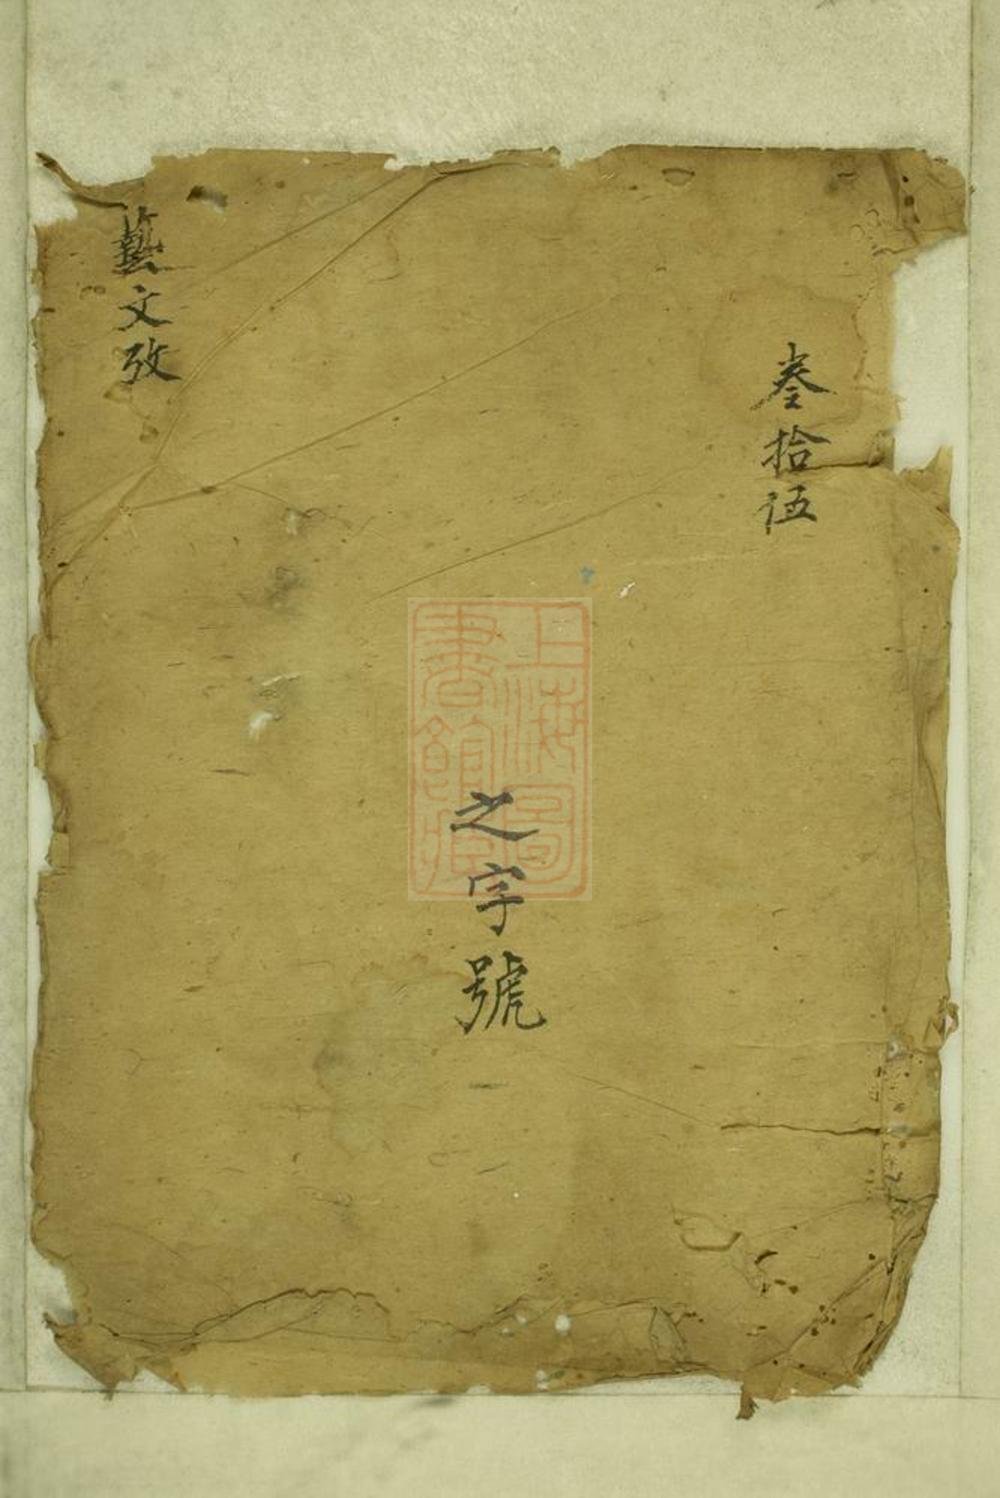 叁拾伍
之字號
藝文攷
上海圖
書館藏